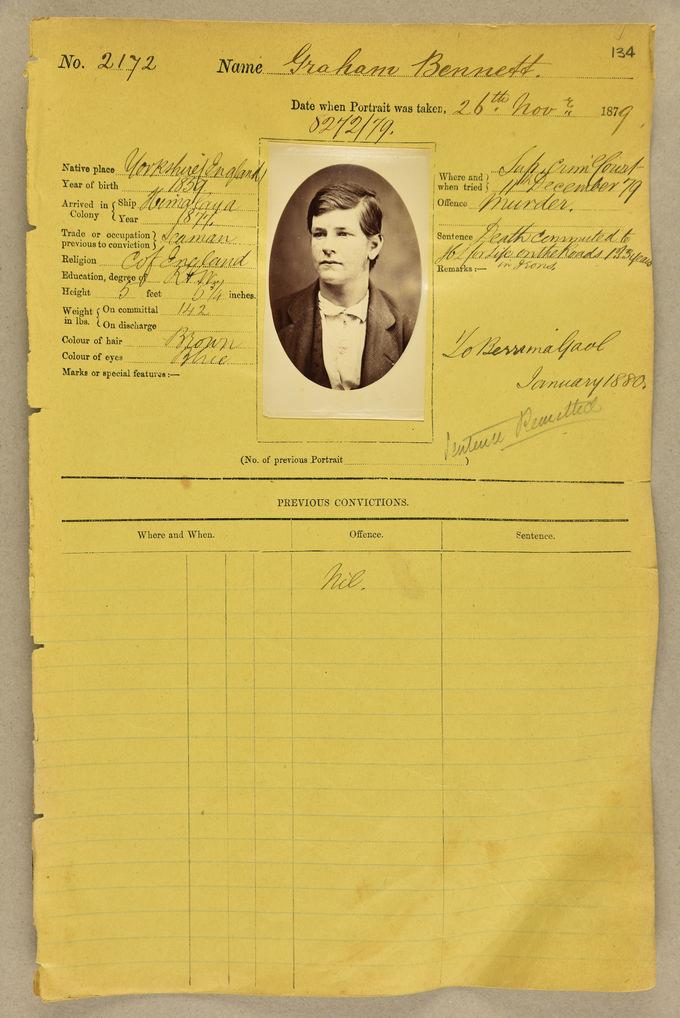 134
No. 2172 Name Graham Bennett.
Date when Portrait was taken, 26th Novr 1879.
8272/79.
Native place Yorkshire (England)
Year of birth 1859
Arrived in Colony { Ship Himalaya
Year 1877.
Trade or occupation previous to conviction } Seaman
Religion C of England
Education, degree of R & W
Height 5 feet 5¼ inches.
Weight in lbs. { On committal 142
On discharge
Colour of hair Brown
Colour of eyes Blue
Marks or special features:—
Where and when tried } Sup. Crim Court
11th December 79
Offence Murder.
Sentence Death commuted to
for Life on the Roads 1st 3 years
in Irons
Remarks:—
To Berrima Gaol
January 1880.
Sentence Remitted
(No. of previous Portrait )
PREVIOUS CONVICTIONS.
Where and When. Offence. Sentence.
Nil.